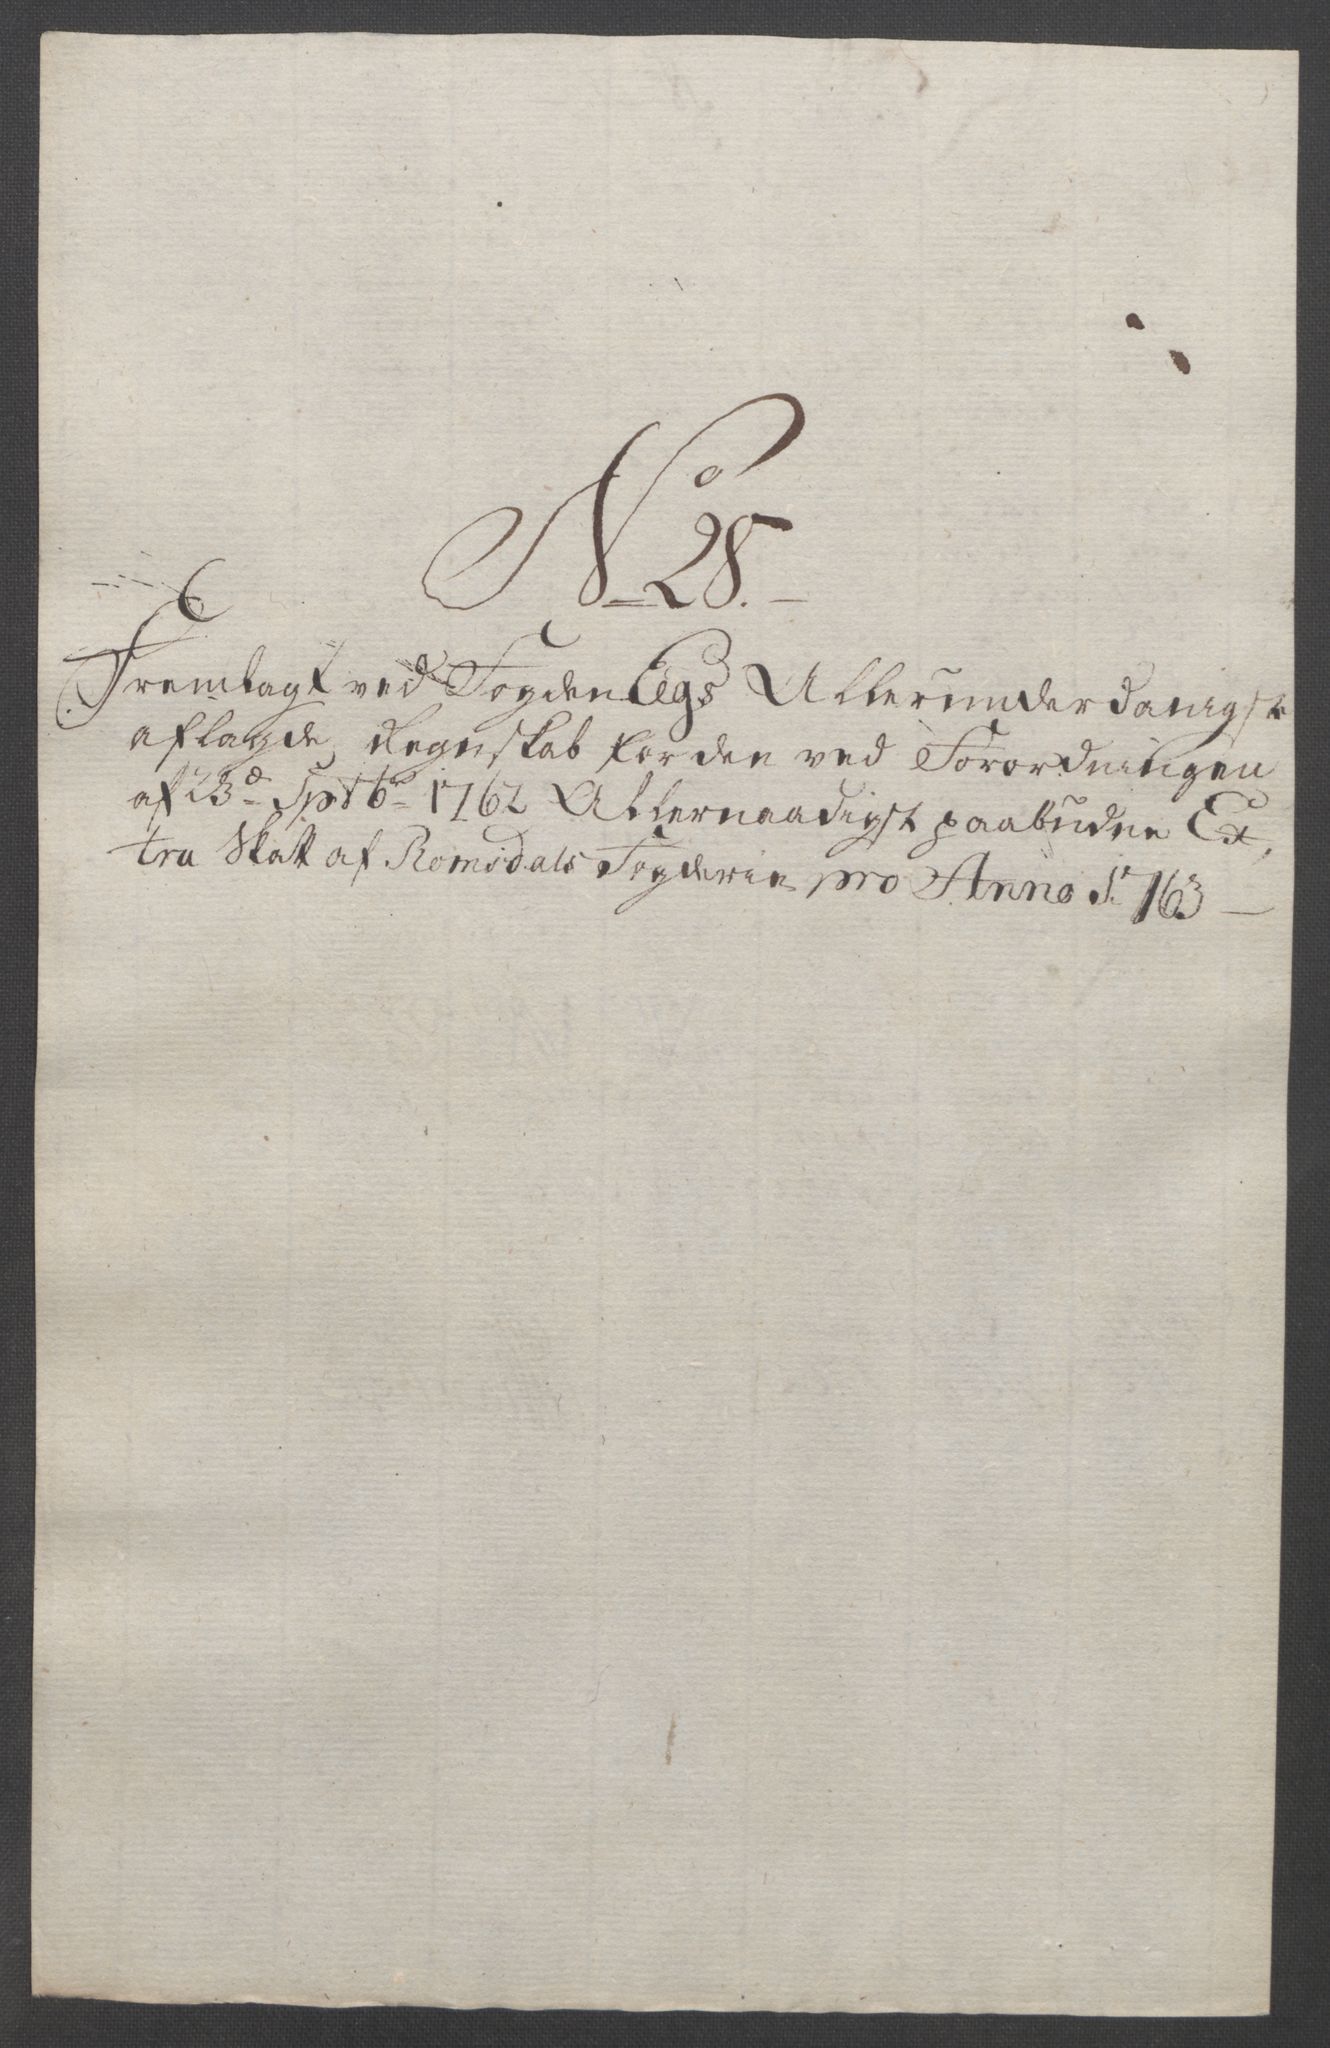 No 28.
Fremlagt ved Fogden Eegs Allerunderdanigst
aflagde Regnskab for den ved Forordningen
af 23de Sptbr 1762 Allernaadigst paabudne Ex,
tra Skatt af Romsdals Fogderie pro Anno 1763